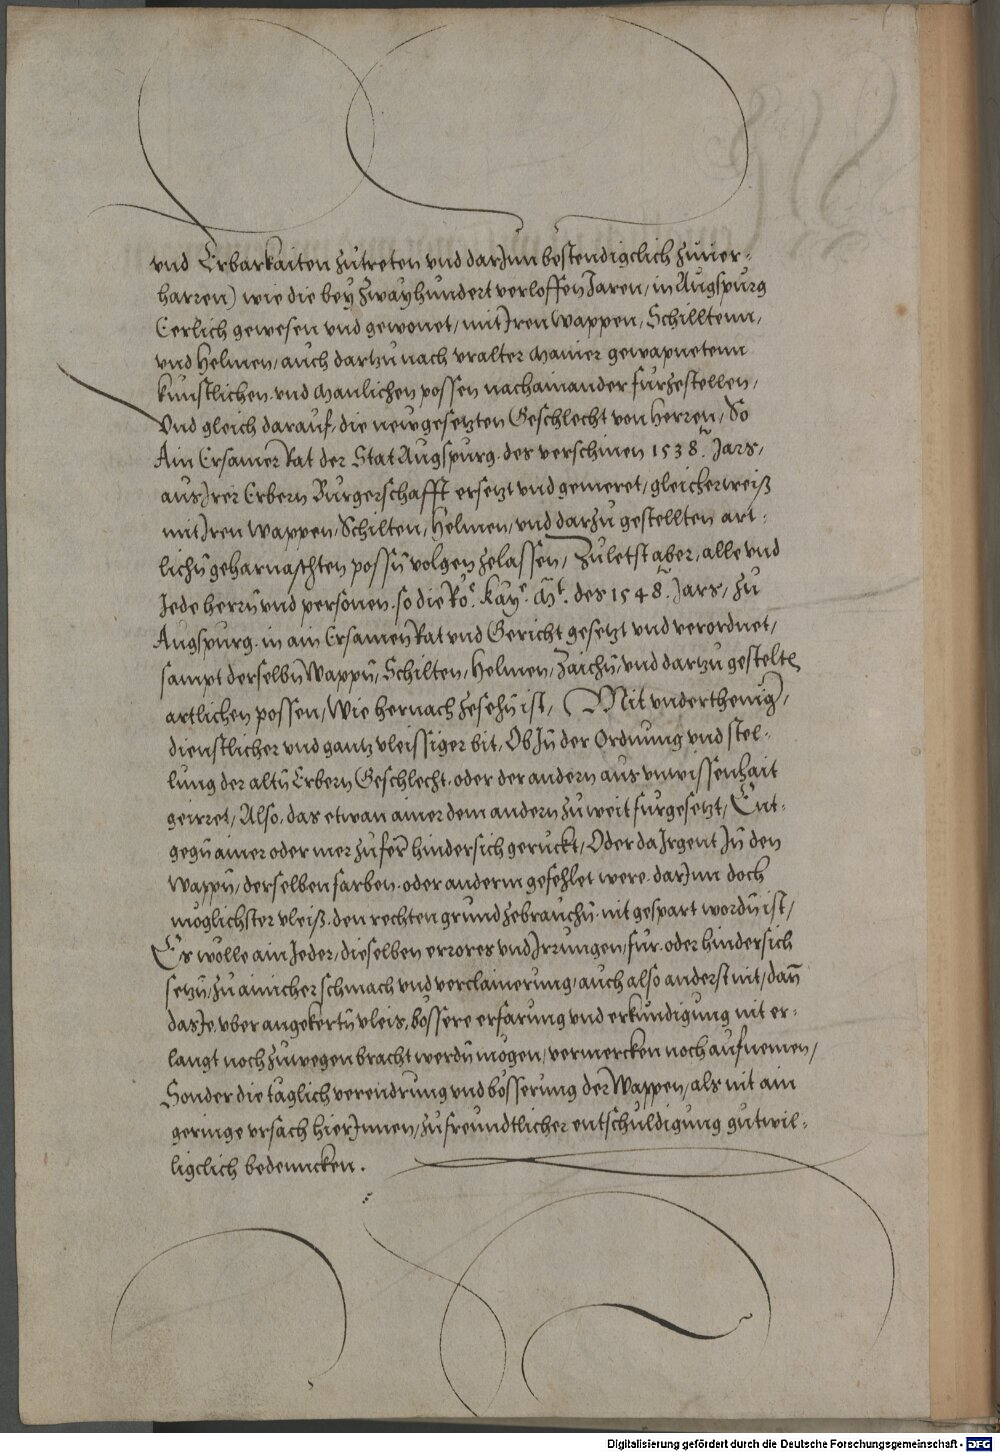 vnd Erbarkaiten zutreten vnd darJnn bestendigclich zuuer-
harren) wie die bey zwayhundert verloffen Jaren, in Augspurg
Eerlich gewesen vnd gewonet, mit Jren Wappen, Schilltenn,
vnd Helmen, auch dartzu nach vralter Manier gewapnetenn
kunstlichen vnd Manlichen possen nachainander furzestellen,
Vnd gleich darauf, die newgesetzten Geschlecht von Herren, So
Ain Ersamer Rat der Stat Augspurg des verschinen 1538. Jars,
aus Jrer Erbern Burgerschafft ersetzt vnd gemeret, gleicherweiß
mit Jren Wappen, Schilten, Helmen, vnd darzu gestellten art-
lichn̄ geharnaschten possn̄ volgen zelassen, Zuletst aber, alle vnd
Jede herrn̄ vnd personen so die Ro. Kay. Mt. des 1548. Jars, zu
Augspurg in ain Ersamen Rat vnd Gericht gesetzt vnd verordnet,
sampt derselbn̄ Wappn̄, Schilten, Helmen, Zaichn̄, vnd dartzu gestelte
artlichen possen, Wie hernach zesehn̄ ist, (Mit vnderthenig),
dienstlicher vnd gantz vleissiger bit, Ob Jn̄ der Ordnung vnd stel-
lung der altn̄ Erbern Geschlecht oder der andern aus vnwissenhait
geirret, Also, das etwan ainer dem andern zu weit furgesetzt, Ent-
gegn̄ ainer oder mer zu fer̄ hindersich geruckt, Oder da Jrgent Jn̄ den
Wappn̄, derselben farben oder anderm gefehlet were darJnn doch
möglichster vleiß den rechten grund zebrauchn̄ nit gespart wordn̄ ist,
Es wölle ain Jeder, dieselben errores vnd Jrrungen, fur oder hindersich
setzn̄, zu ainicher schmach vnd verclainerung, auch also anderst nit, dan̄
das Je vber angekertn̄ vleis, bössere erfarung vnd erkundigung nit er-
langt noch zuwegen bracht werdn̄ mögen, vermercken noch aufnemen,
Sonder die täglich verendrung vnd bösserung der Wappen, als nit ain
geringe vrsach hierJnnen, zu freundtlicher entschuldigung gutwil-
ligclich bedenncken.
Digitalisierung gefördert durch die Deutsche Forschungsgemeinschaft - DFG